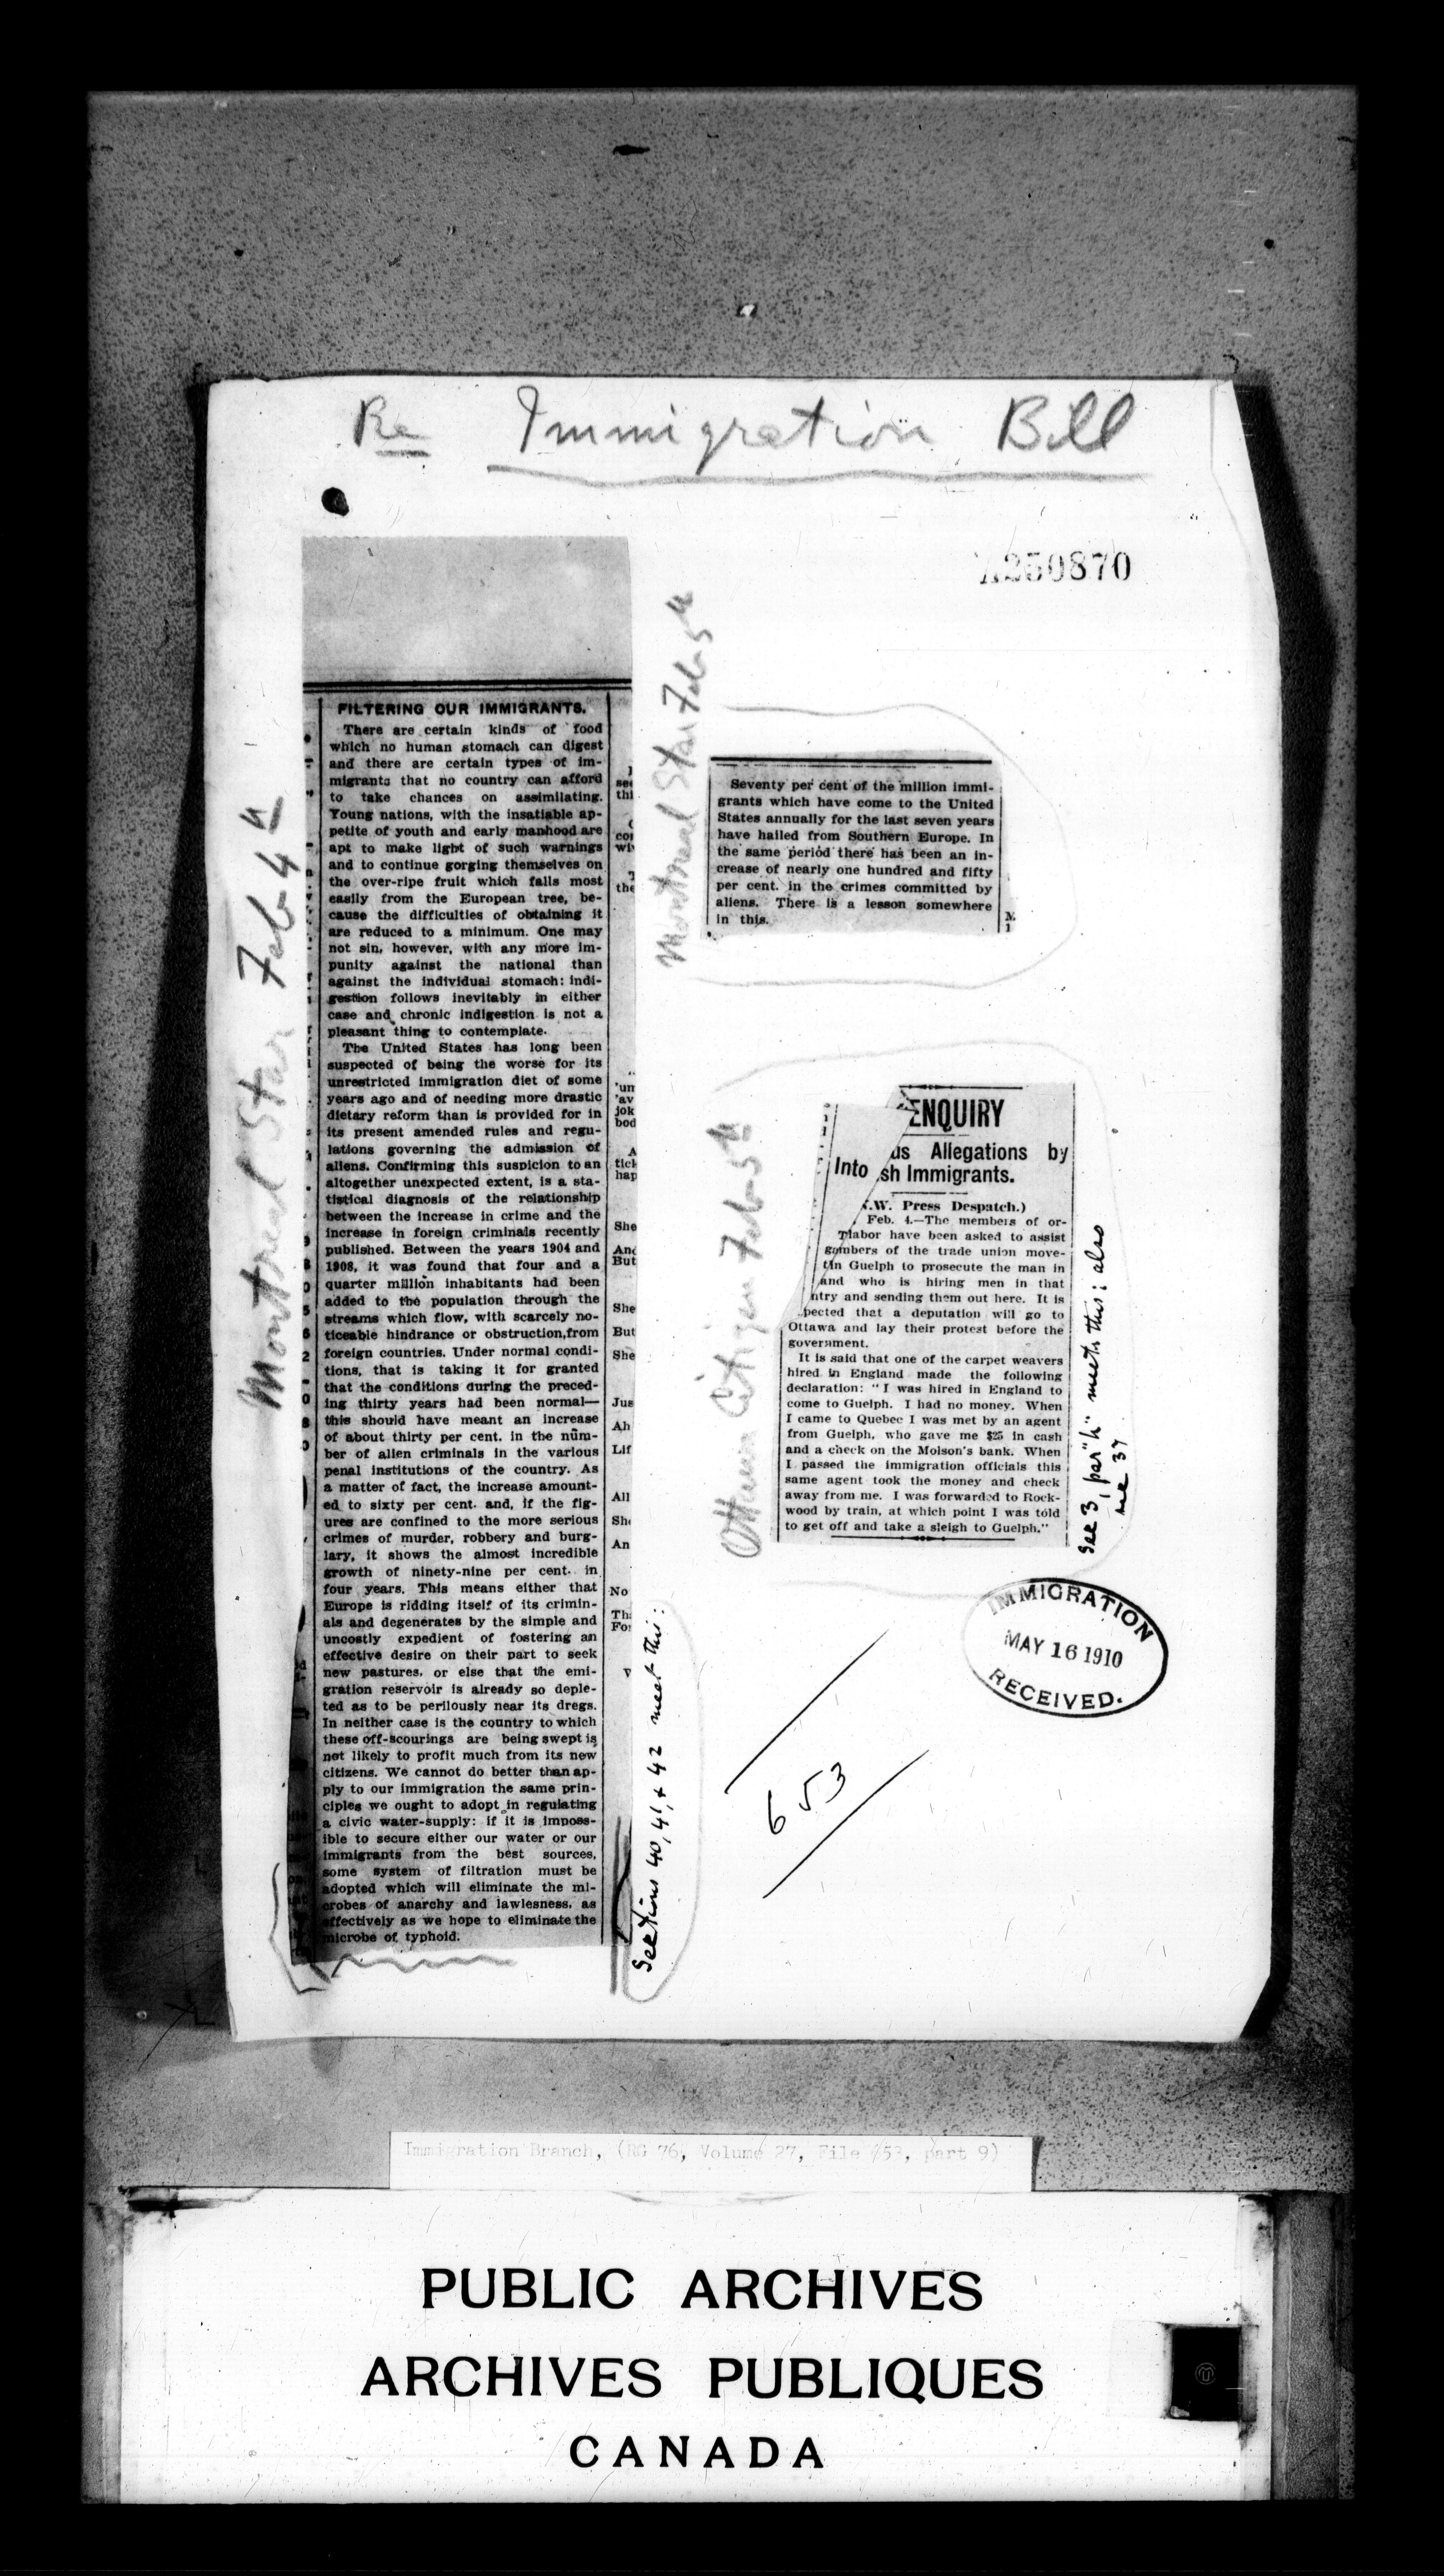 Re Immigration Bill
A250870
Montreal Star Feb 4th
FILTERING OUR IMMIGRANTS.
There are certain kinds of food
which no human stomach can digest
and there are certain types of im-
migrants that no country can afford
to take chances on assimilating.
Young nations, with the insatiable ap-
petite of youth and early manhood are
apt to make light of such warnings
and to continue gorging themselves on
the over-ripe fruit which falls most
easily from the European tree, be-
cause the difficulties of obtaining it
are reduced to a minimum. One may
not sin, however, with any more im-
punity against the national than
against the individual stomach: indi-
gestion follows inevitably in either
case and chronic indigestion is not a
pleasant thing to contemplate.
The United States has long been
suspected of being the worse for its
unrestricted immigration diet of some
years ago and of needing more drastic
dietary reform than is provided for in
its present amended rules and regu-
lations governing the admission of
aliens. Confirming this suspicion to an
altogether unexpected extent, is a sta-
tistical diagnosis of the relationship
between the increase in crime and the
increase in foreign criminals recently
published. Between the years 1904 and
1908, it was found that four and a
quarter million inhabitants had been
added to the population through the
streams which flow, with scarcely no-
ticeable hindrance or obstruction, from
foreign countries. Under normal condi-
tions, that is taking it for granted
that the conditions during the preced-
ing thirty years had been normal—
this should have meant an increase
of about thirty per cent. in the num-
ber of alien criminals in the various
penal institutions of the country. As
a matter of fact, the increase amount-
ed to sixty per cent. and, if the fig-
ures are confined to the more serious
crimes of murder, robbery and burg-
lary, it shows the almost incredible
growth of ninety-nine per cent. in
four years. This means either that
Europe is ridding itself of its crimin-
als and degenerates by the simple and
uncostly expedient of fostering an
effective desire on their part to seek
new pastures, or else that the emi-
gration reservoir is already so deple-
ted as to be perilously near its dregs.
In neither case is the country to which
these off-scourings are being swept is
not likely to profit much from its new
citizens. We cannot do better than ap-
ply to our immigration the same prin-
ciples we ought to adopt in regulating
a civic water-supply: if it is imposs-
ible to secure either our water or our
immigrants from the best sources,
some system of filtration must be
adopted which will eliminate the mi-
crobes of anarchy and lawlesness, as
effectively as we hope to eliminate the
microbe of typhoid.
Sections 40, 41, + 42 meet this:
Montreal Star Feb 5th
Seventy per cent of the million immi-
grants which have come to the United
States annually for the last seven years
have hailed from Southern Europe. In
the same period there has been an in-
crease of nearly one hundred and fifty
per cent. in the crimes committed by
aliens. There is a lesson somewhere
in this.
Ottawa Citizen Feb 5th
ENQUIRY
Into us Allegations by
sh Immigrants.
.W. Press Despatch.)
Feb. 4.—The members of or-
labor have been asked to assist
mbers of the trade union move-
in Guelph to prosecute the man in
and who is hiring men in that
ntry and sending them out here. It is
pected that a deputation will go to
Ottawa and lay their protest before the
government.
It is said that one of the carpet weavers
hired in England made the following
declaration: "I was hired in England to
come to Guelph. I had no money. When
I came to Quebec I was met by an agent
from Guelph, who gave me $25 in cash
and a check on the Molson's bank. When
I passed the immigration officials this
same agent took the money and check
away from me. I was forwarded to Rock-
wood by train, at which point I was told
to get off and take a sleigh to Guelph."
See 3, par "h" meets this; also
37
IMMIGRATION
MAY 16 1910
RECEIVED.
653
Immigration Branch, (RG 76, Volume 27, File 653, part 9)
PUBLIC ARCHIVES
ARCHIVES PUBLIQUES
CANADA